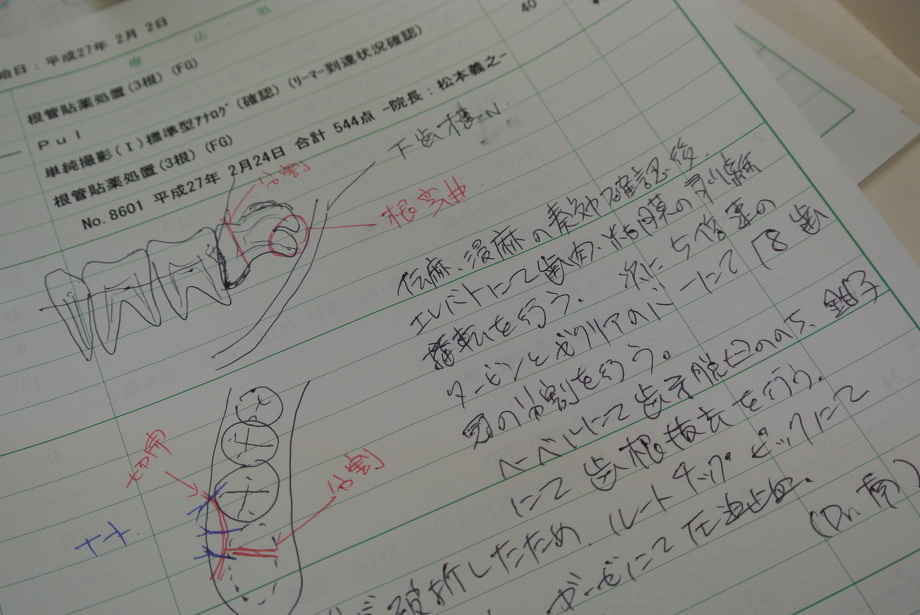 始日：平成27年 2月 2日
療法・処
40
根管貼薬処置(3根)(FG)
Ｐｕｌ
単純撮影(Ｉ)標準型ｱﾅﾛｸﾞ(確認)(ﾘｰﾏｰ到達状況確認)
根管貼薬処置(3根)(FG)
No.8601 平成27年 2月24日 合計 544点 -院長：松本義之-
下歯槽N.
分割
根弯曲.
伝麻、浸麻の奏効確認後、
エレバトにて歯肉・粘膜の剥離
を行う. 次に5倍速の
タービンとゼクリアのバーにて 8 歯
冠の分割を行う。
ヘーベルにて歯牙脱臼ののち、鉗子
にて歯根抜去を行う.
破折したため、ルートチップピックにて
ガーゼにて圧迫止血.
(Dr. 南)
切開
分割